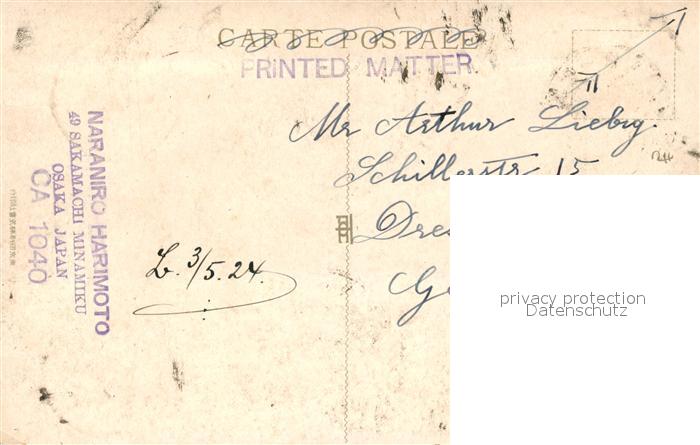 CARTE POSTALE
PRINTED MATTER
Mr Arthur Liebig.
Schillerstr 15
Dre
Ge
NARANIRO HARIMOTO
49 SAKAMACHI MINAMIKU
OSAKA JAPAN
CA 1040
L. 3/5.24.
privacy protection
Datenschutz